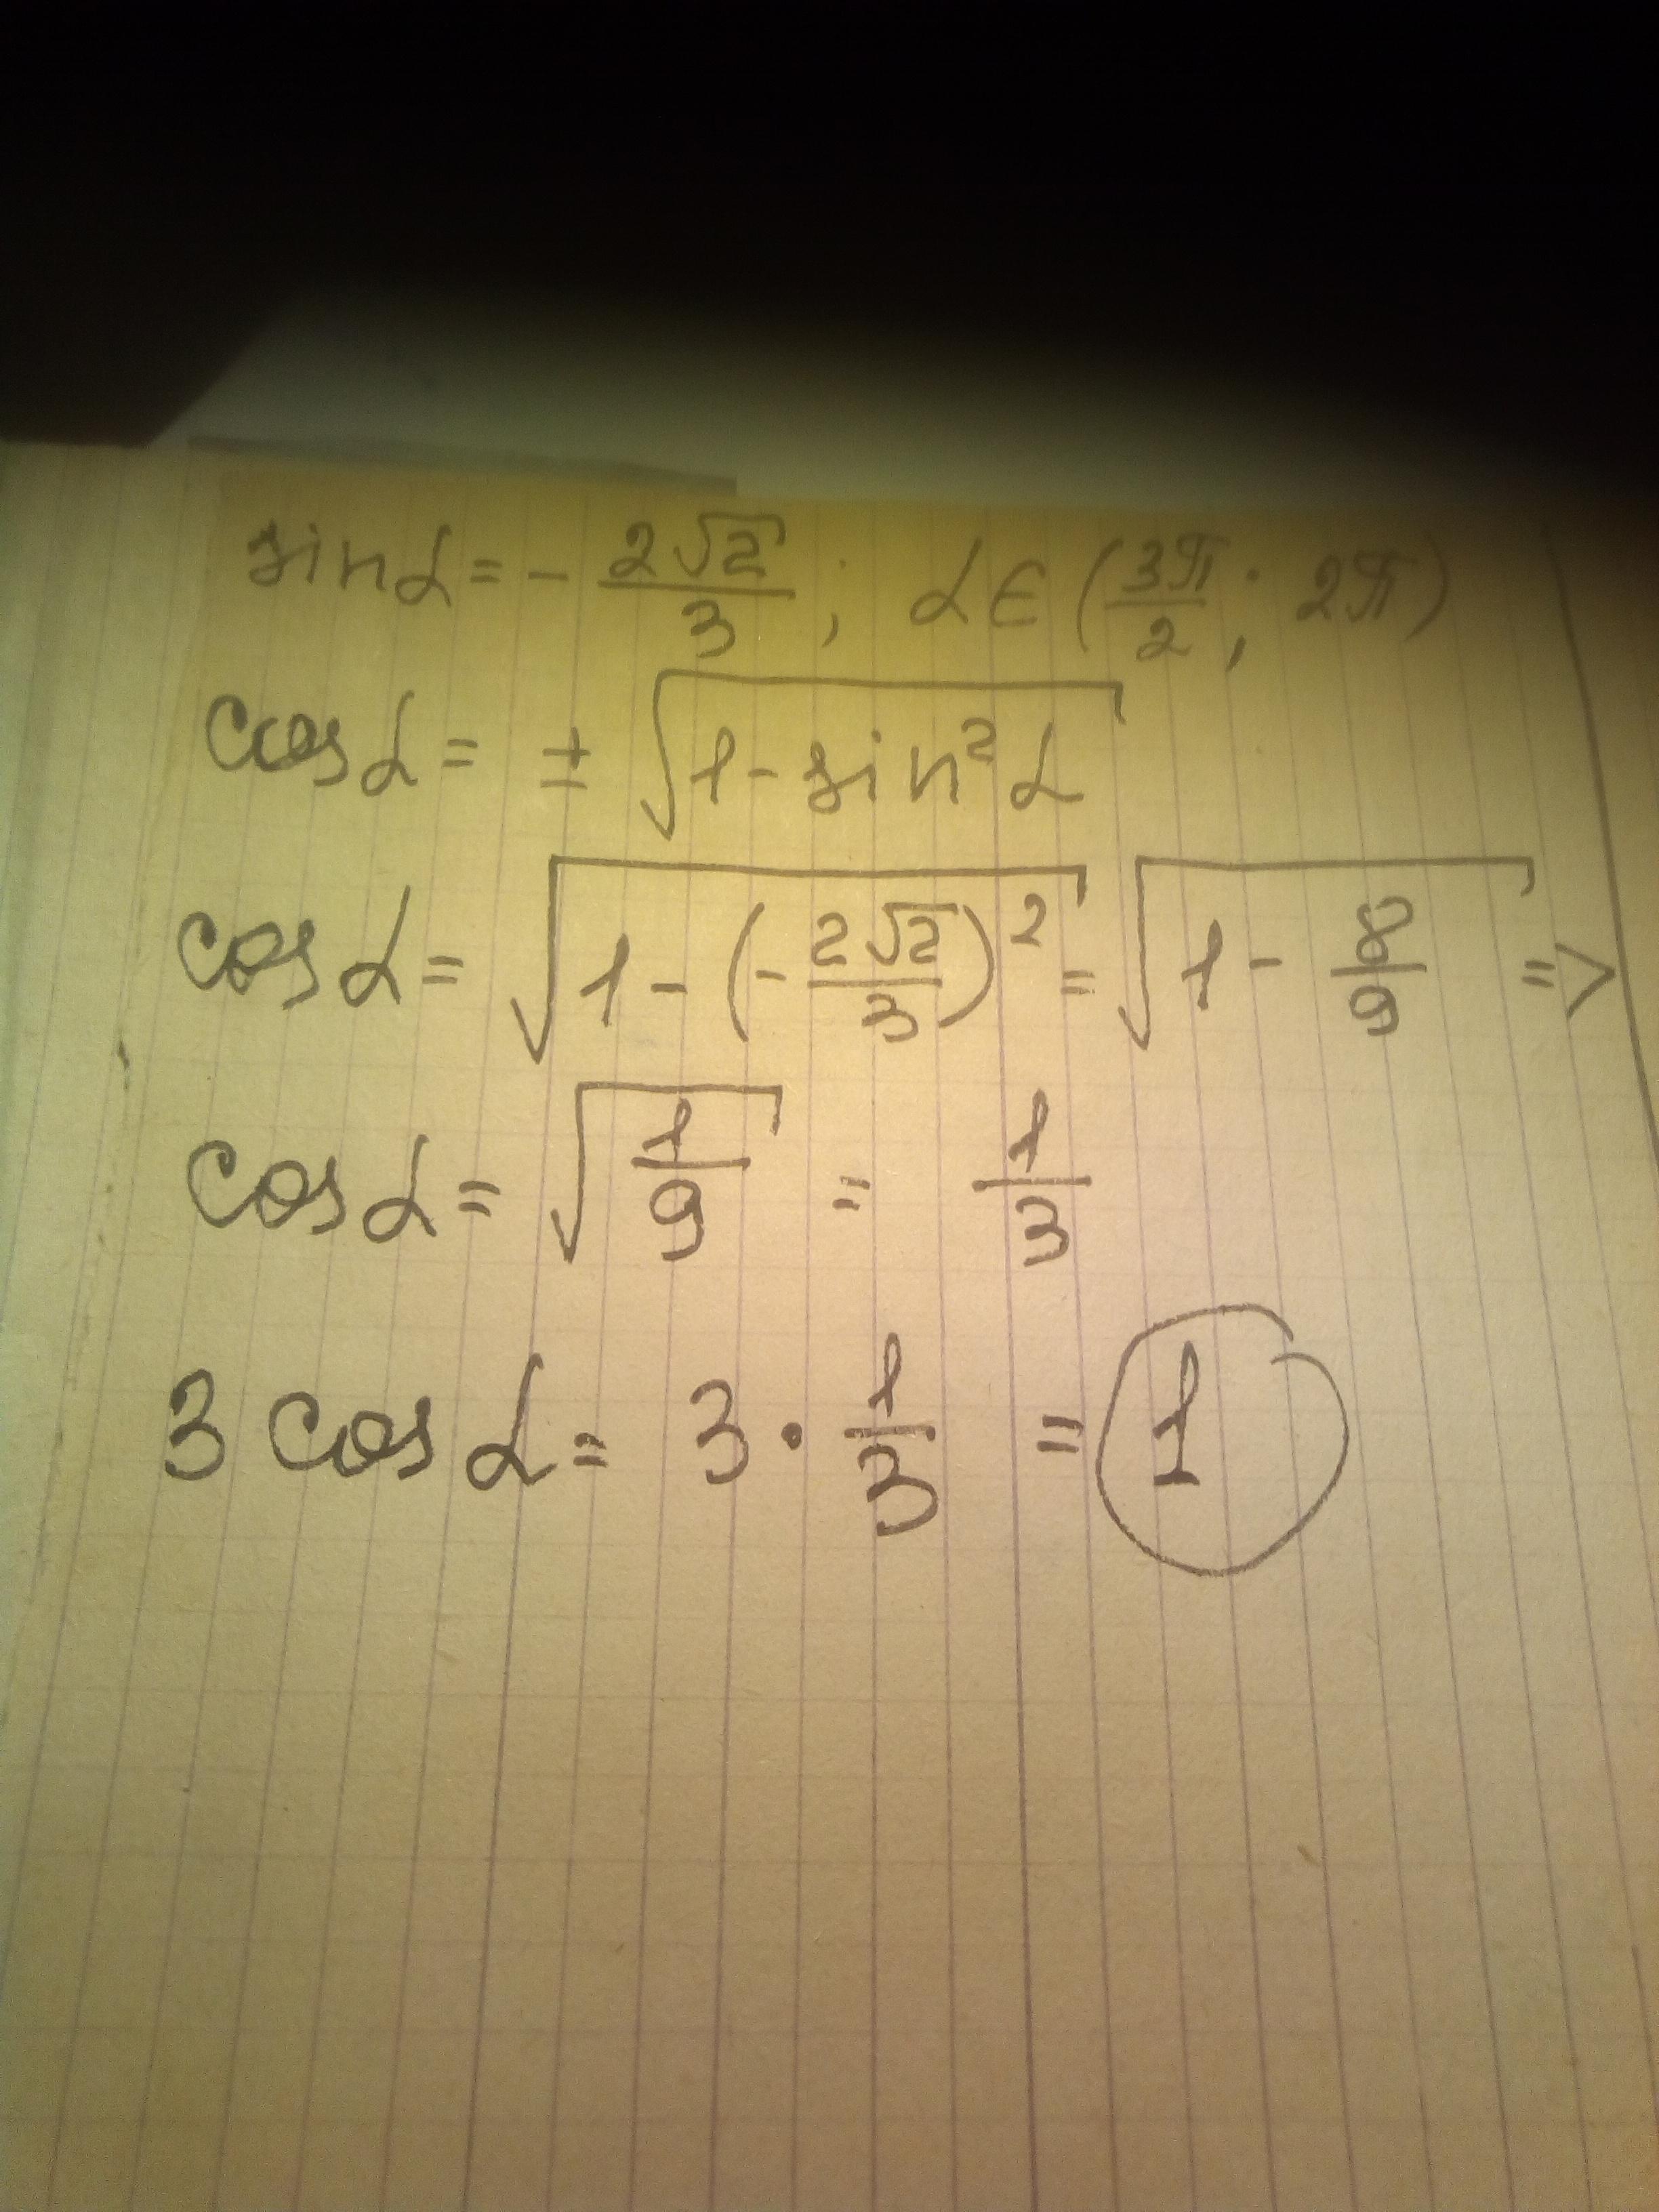 sin α = - 2√2/3 ; α ∈ (3π/2 ; 2π)
cos α = ± √(1 - sin² α)
cos α = √(1 - (- 2√2/3)²) = √(1 - 8/9) =>
cos α = √(1/9) = 1/3
3 cos α = 3 · 1/3 = 1